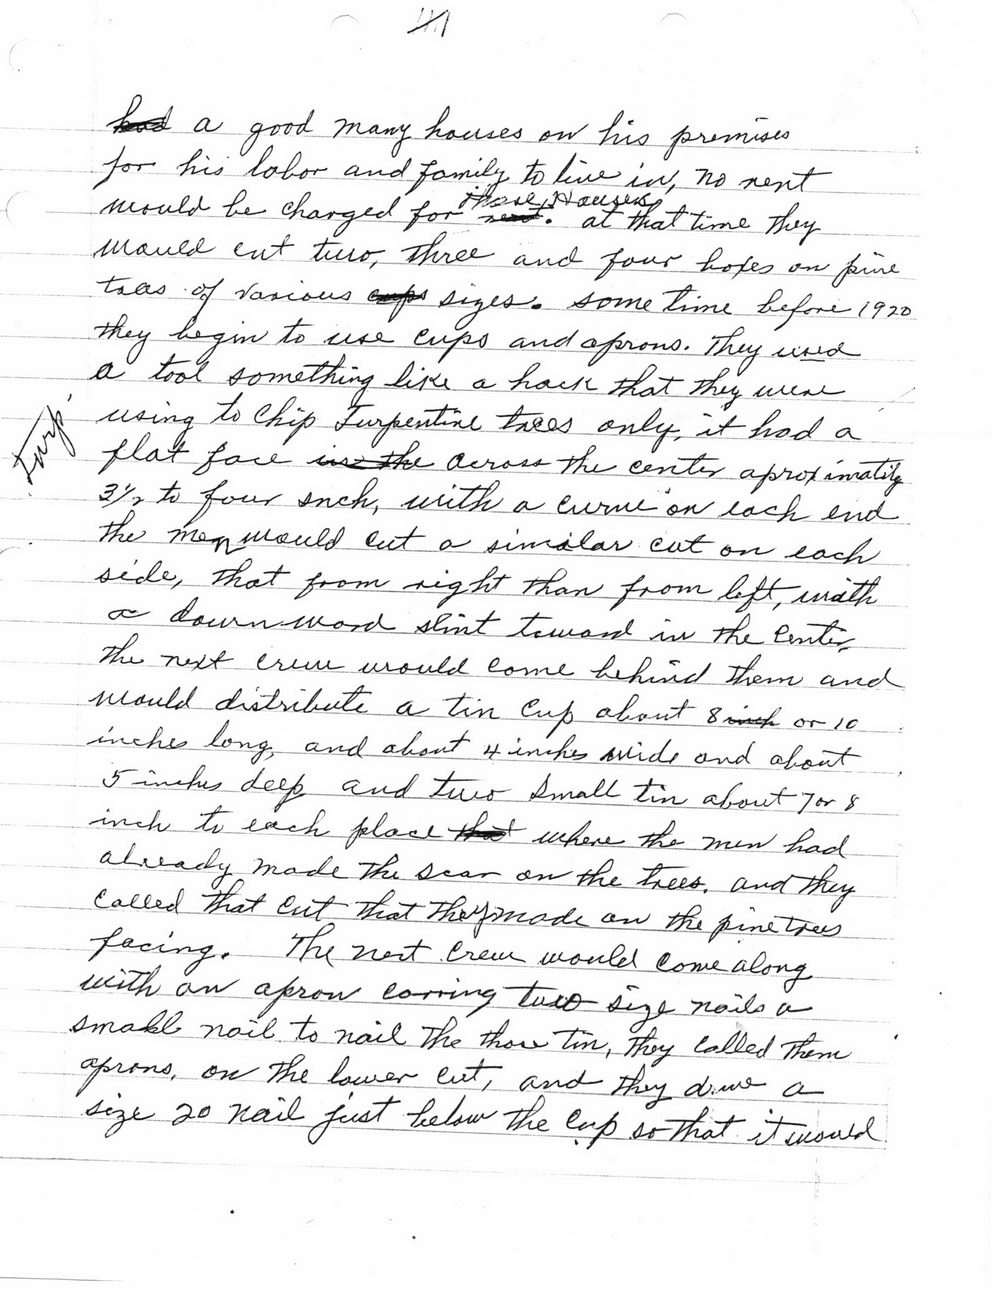 had a good many houses on his premises
for his labor and family to live in, no rent
would be charged for rent. those Houses at that time they
would cut two, three and four boxes on pine
trees of various cups sizes. some time before 1920
they begin to use cups and aprons. They used
a tool something like a hack that they were
using to chip Turpentine trees only, it had a
Turp.
flat face in the across the center aproximatily
3½ to four inch, with a curve on each end
the men would cut a similar cut on each
side, that from right than from left, with
a downward slint toward in the center,
the next crew would come behind them and
would distribute a tin cup about 8 inch or 10
inches long, and about 4 inches wide and about
5 inches deep and two small tin about 7 or 8
inch to each place that where the men had
already made the scar on the trees, and they
called that cut that they made on the pine trees
facing. The next crew would come along
with an apron carring two size nails a
small nail to nail the those tin, they called them
aprons, on the lower cut, and they drive a
size 20 nail just below the cup so that it would